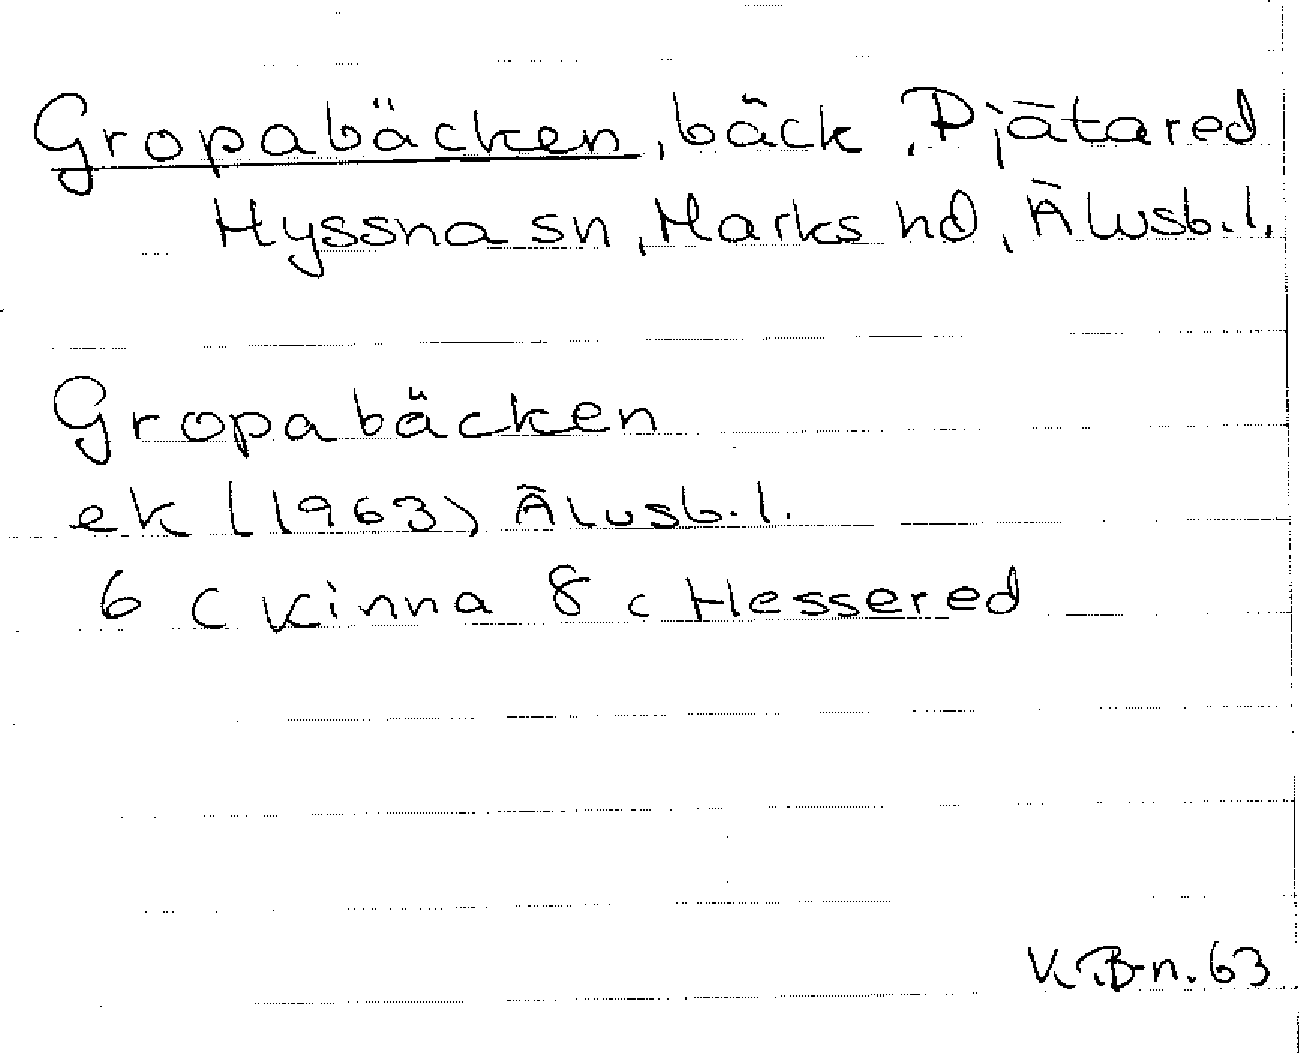 Gropabäcken, bäck, Pjätared
Hyssna sn, Marks hd, Älvsb.l.
Gropabäcken
ek (1963) Älvsb.l.
6 C Kinna 8 c Hessered
K.B-n. 63